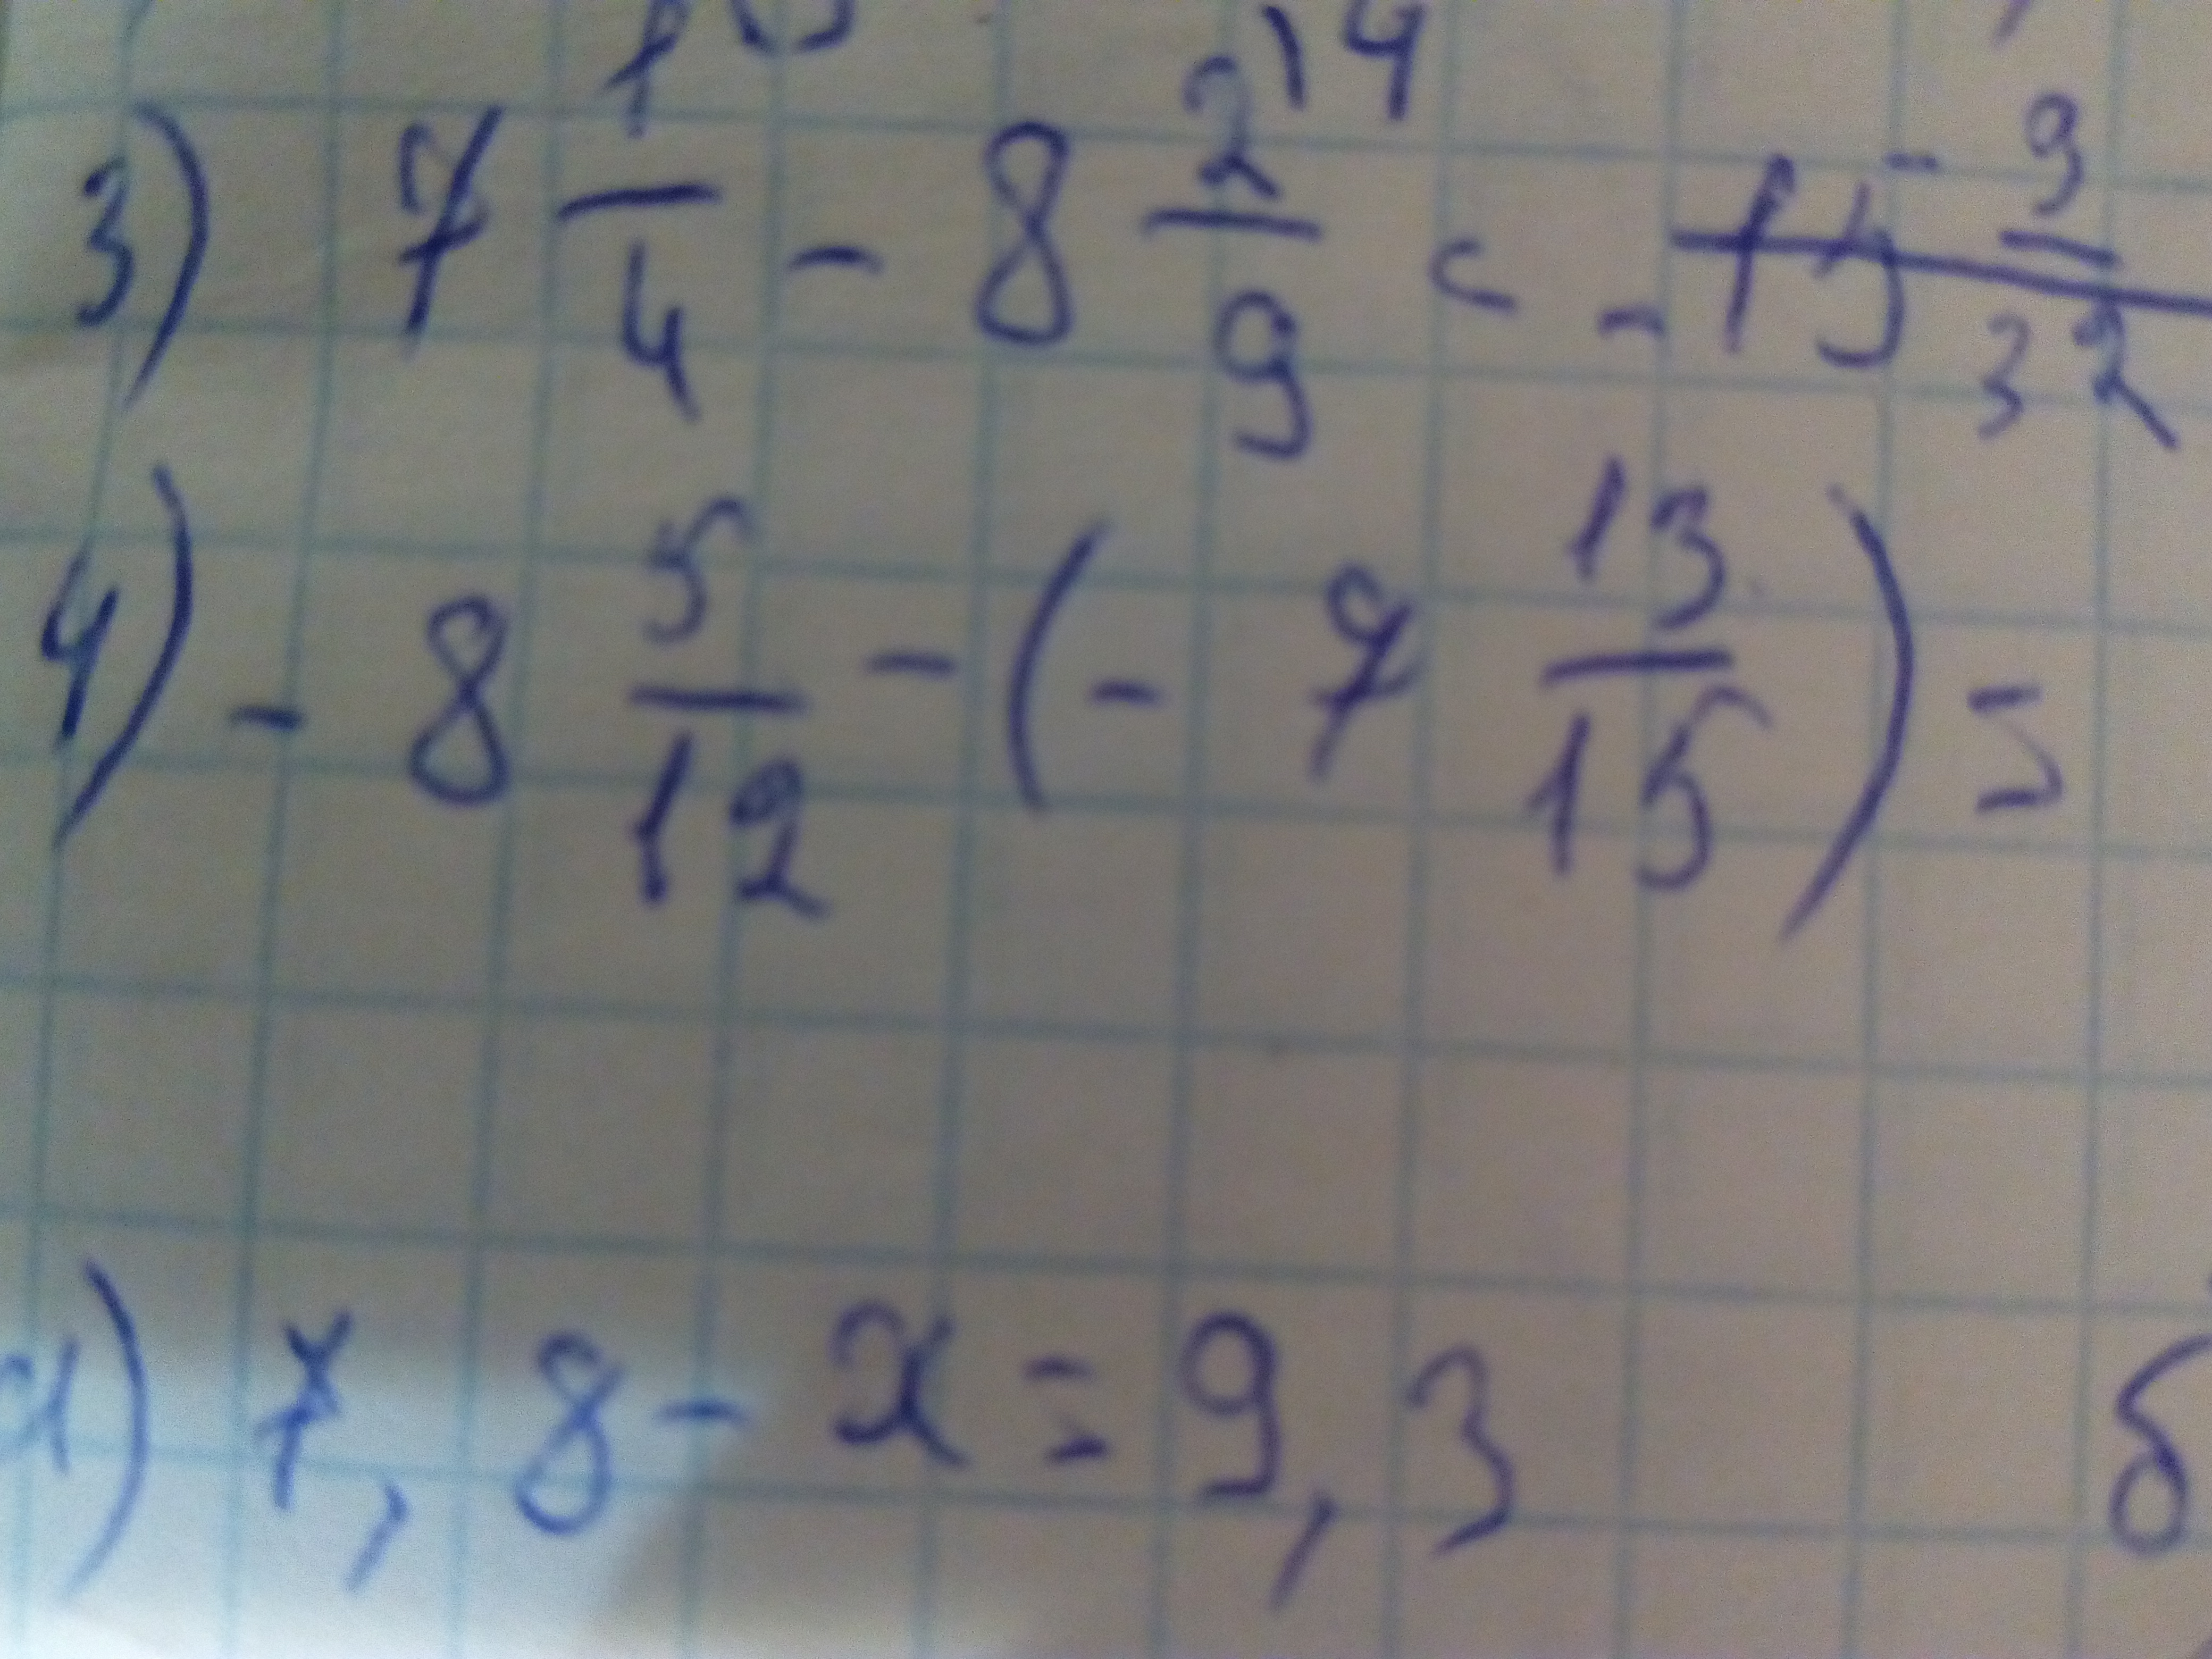 3) 7 1/4 - 8 2/9 \4 = - 15 - 9/32
4) - 8 5/12 - (- 7 13/15) =
а) 7,8 - x = 9,3 б